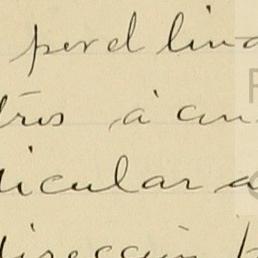 perdl lin
tres á cu
icular a
dirección